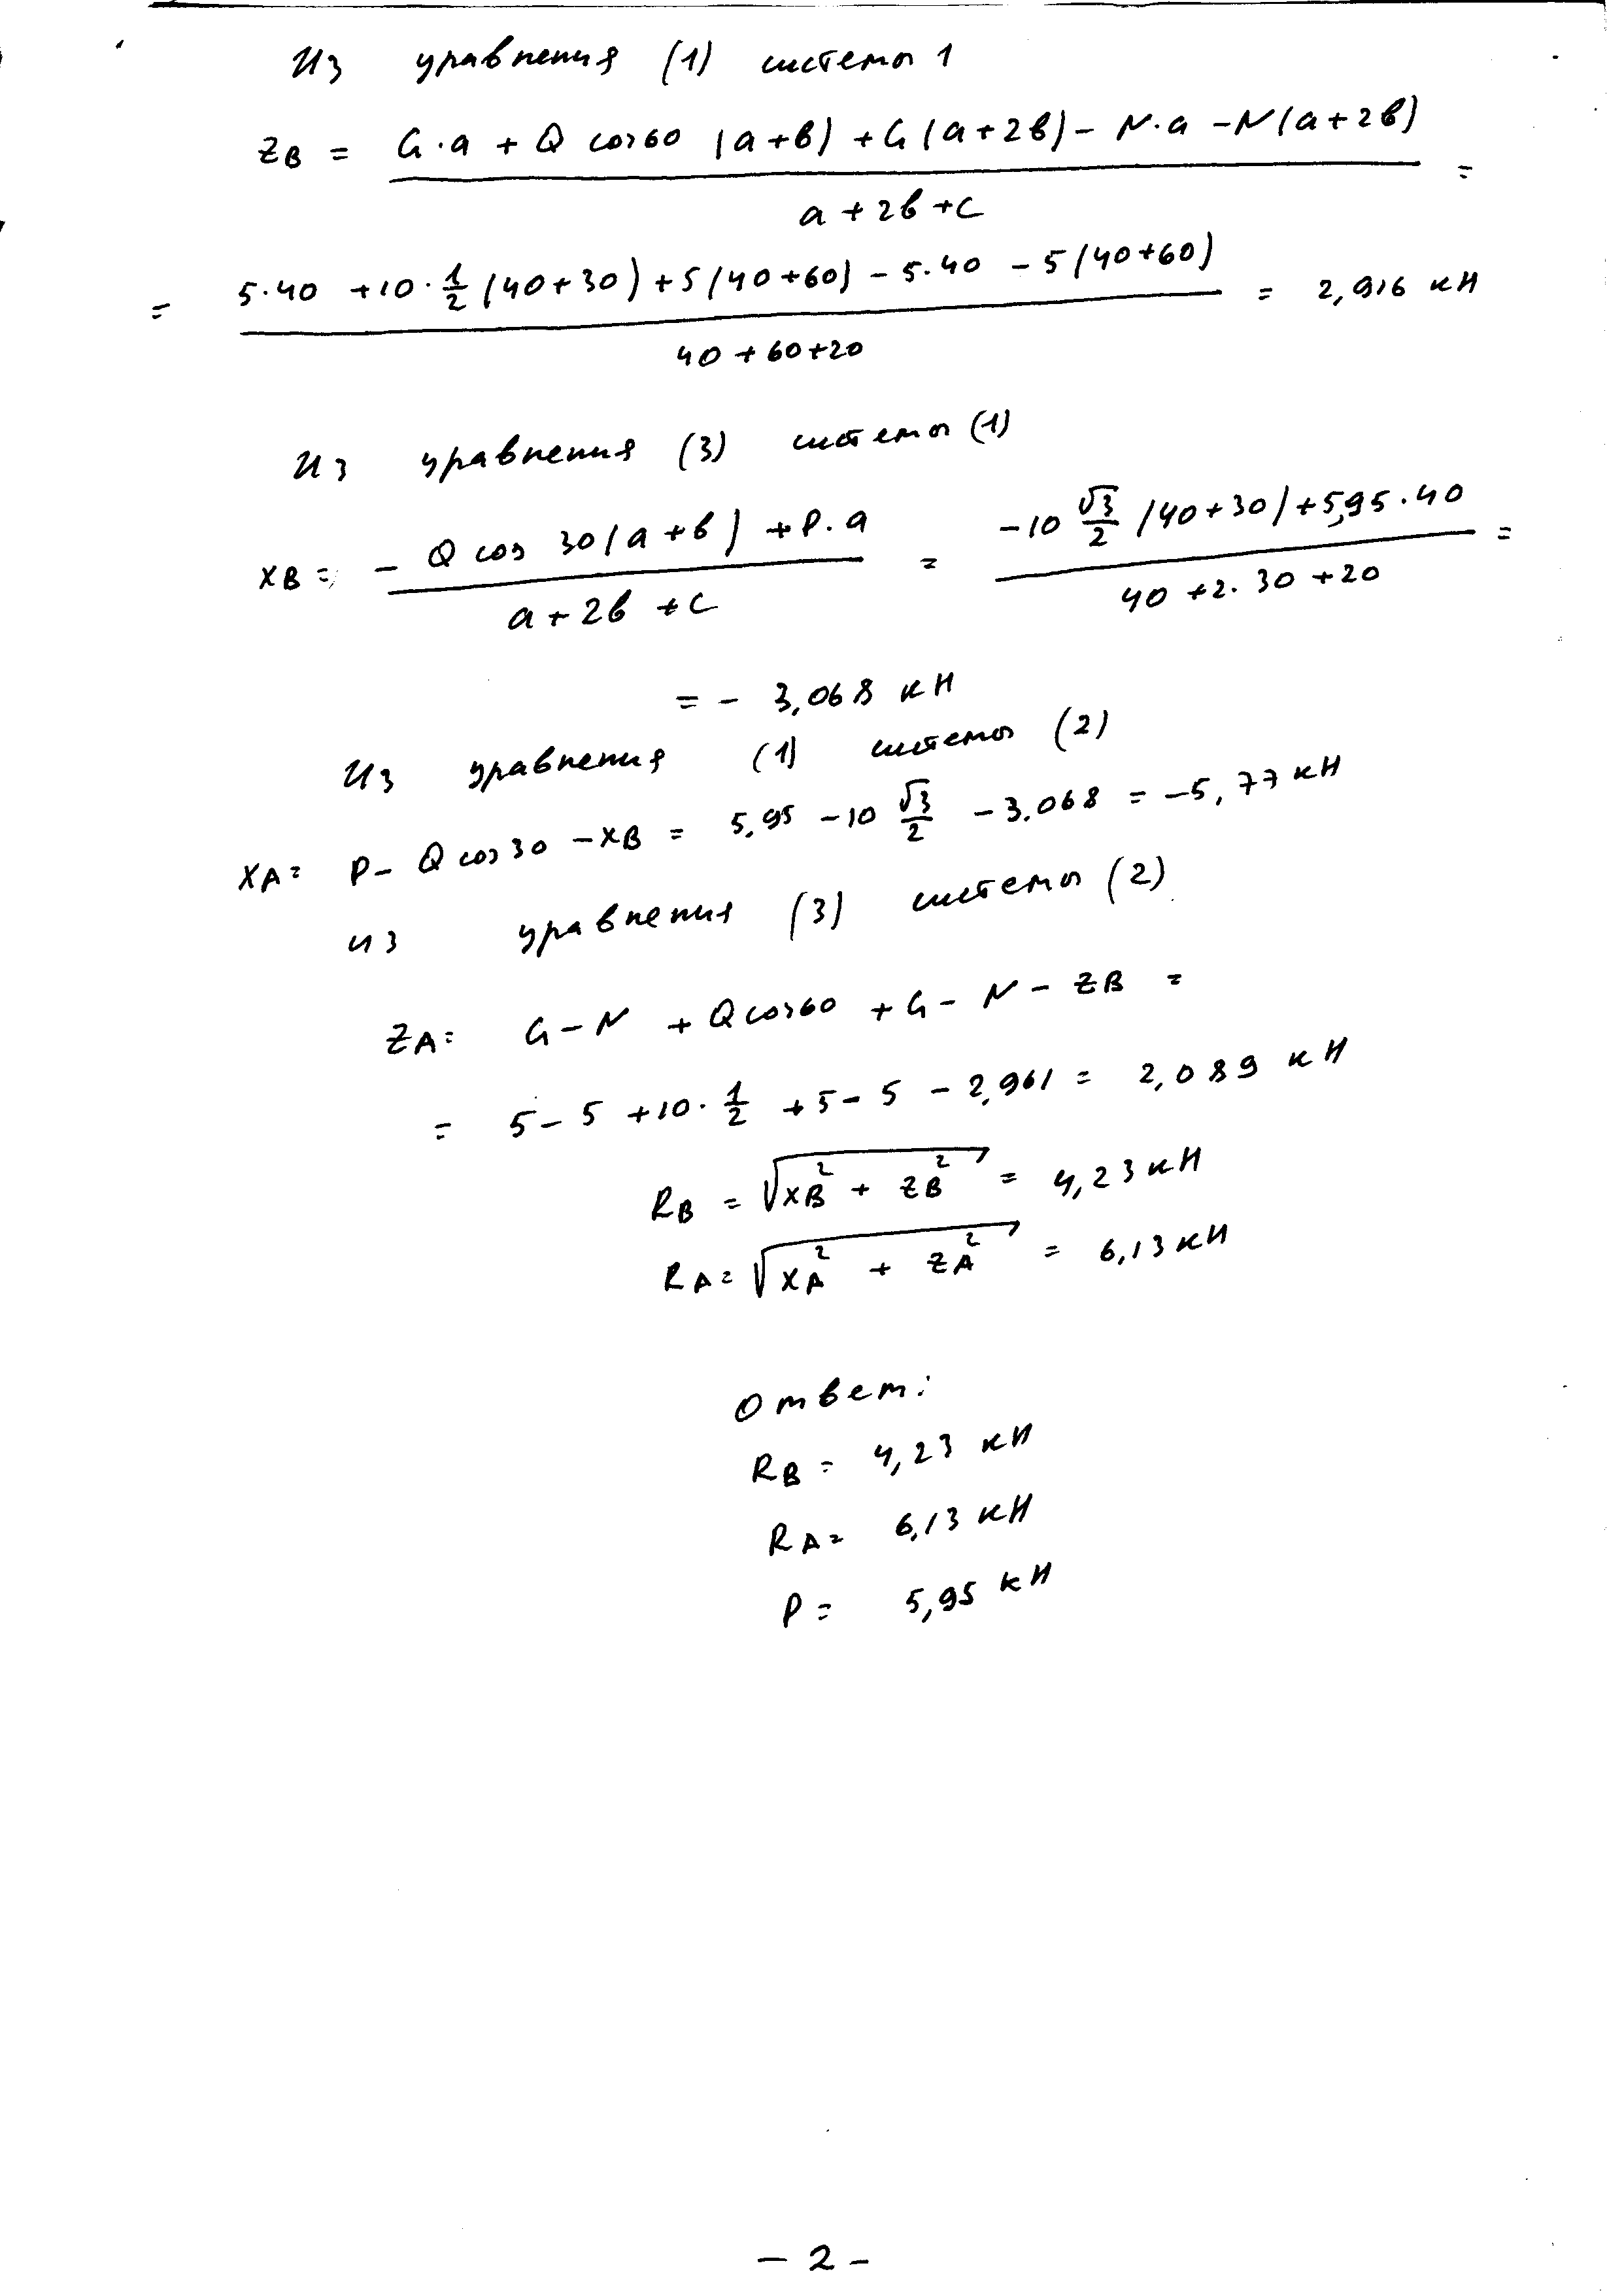 Из уравнения (1) системы 1
ZB = G·a + Q cos60 (a+b) + G(a+2b) - N·a - N(a+2b) =
a + 2b + c
= 5·40 + 10·1/2 (40+30) + 5(40+60) - 5·40 - 5(40+60) = 2,916 кН
40 + 60 + 20
Из уравнения (3) системы (1)
XB = - Q cos 30(a+b) + P·a = -10 √3/2 (40+30) + 5,95·40 =
a + 2b + c 40 + 2·30 + 20
= - 3,068 кН
Из уравнения (1) системы (2)
XA = P - Q cos30 - XB = 5,95 - 10 √3/2 - 3.068 = -5,77 кН
из уравнения (3) системы (2)
ZA = G - N + Q cos60 + G - N - ZB =
= 5 - 5 + 10·1/2 + 5 - 5 - 2,961 = 2,089 кН
RB = √XB² + ZB² = 4,23 кН
RA = √XA² + ZA² = 6,13 кН
Ответ:
RB = 4,23 кН
RA = 6,13 кН
P = 5,95 кН
- 2 -